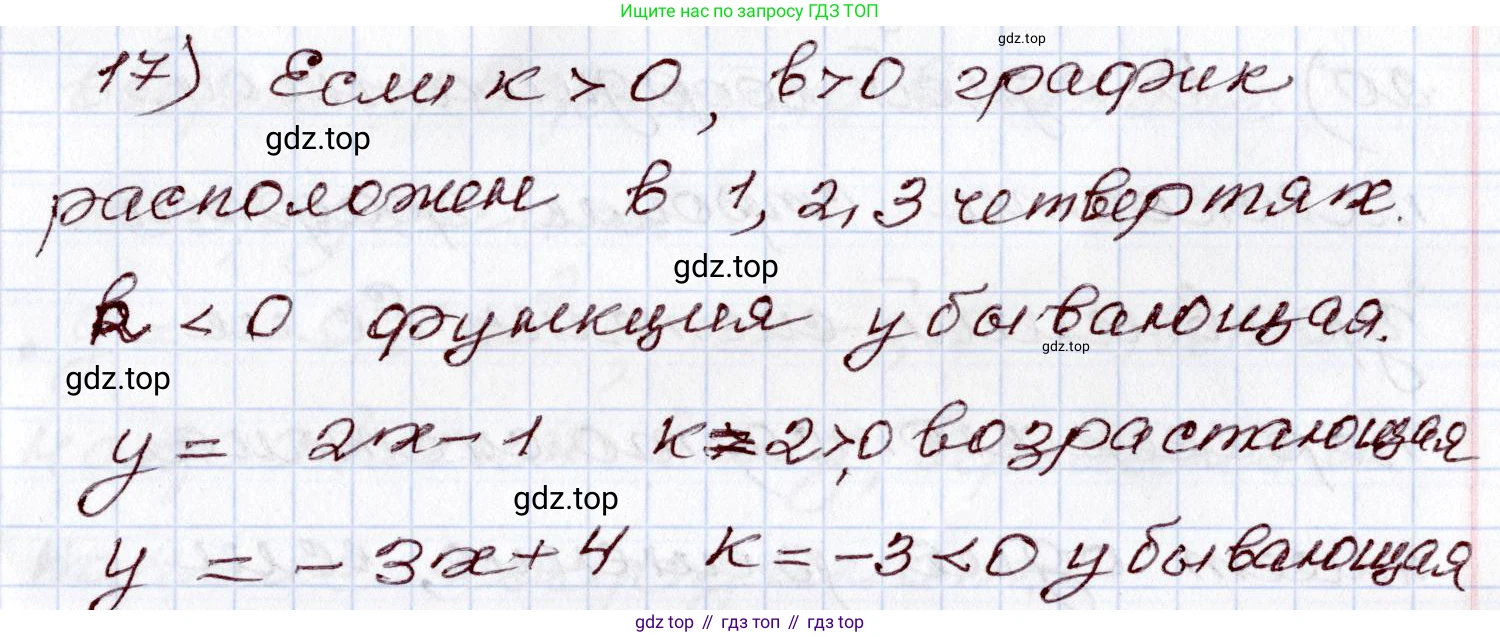 Ищите нас по запросу ГДЗ ТОП
17) Если к > 0, в > 0 график
gdz.top
gdz.top
расположен в 1, 2, 3 четвертях.
gdz.top
k < 0 функция убывающая.
gdz.top
gdz.top
y = 2x - 1 к = 2 > 0 возрастающая
gdz.top
y = -3x + 4 к = -3 < 0 убывающая
gdz top // гдз топ // гдз top